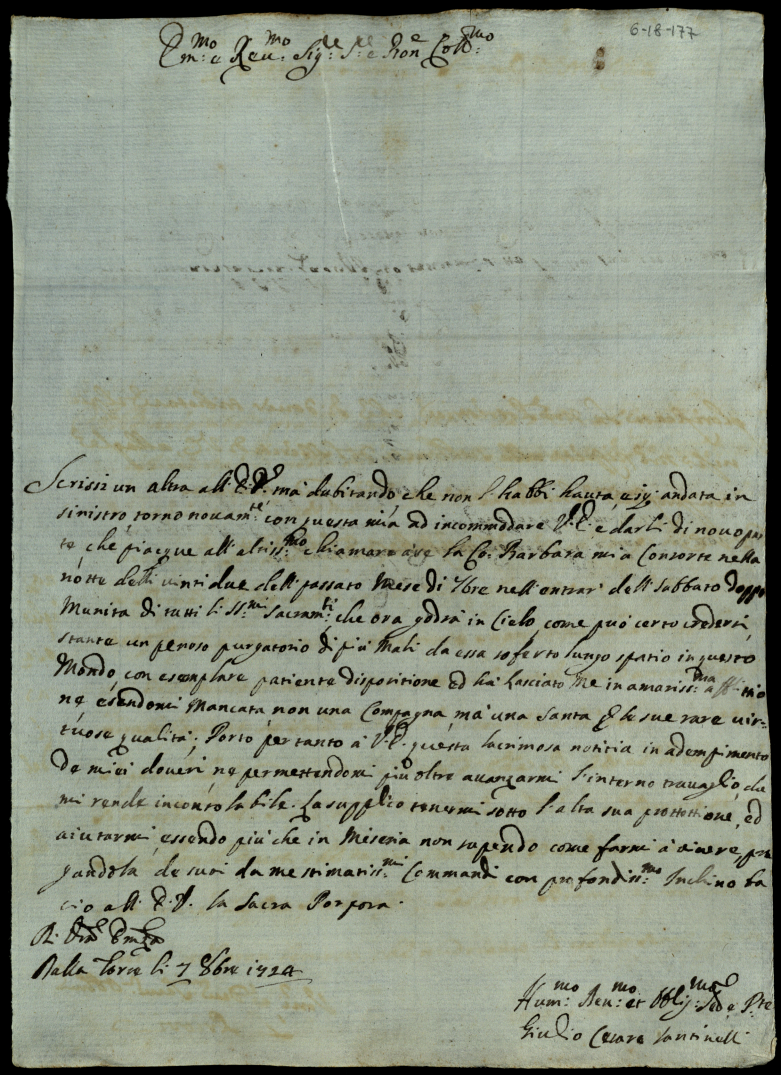 6-18-177
Em:mo e Reu:mo Sig:re S:re e Pron:e Coll:mo
Scrissi un altra all'E.V. mà dubitando, che non l'habbi hauta, e sij andata in
sinistro, torno nouam:te con questa mia ad incommodare V.E. e darli di nouo par
te, che piacque all'altiss:mo chiamare à se la Co: Barbara mia Consorte nella
notte delli uinti due dell'passato Mese di 7bre nell'entrar dell'Sabbato doppo
Munita di tutti li SS:mi Sacram:ti, che ora godrà in Cielo, come può certo credersi,
stante un penoso purgatorio di più Mali da essa soferto lungo spatio in questo
Mondo, con esemplare patiente dispositione ed hà lasciato Me in amariss:ma afflitio
ne esendomi Mancata non una Compagna, mà una Santa p le sue rare uir-
tuose qualità; Porto pertanto à V.E. questa lacrimosa notitia in adempimento
de miei doueri, ne permettendomi più oltre auanzarmi l'interno trauaglio, che
mi rende inconsolabile. La supplico tenermi sotto l'alta sua prottettione, ed
aiutarmi, essendo più che in Miseria non sapendo come farmi à uiuere, pre
gandola de suoi da me stimatiss:mi Commandi con profondiss:mo Inchino ba
cio all'E.V. la Sacra Porpora.
Di Vra Emza
Dalla Torre li 7 8bre 1724
Hum:mo Deu:mo et Oblig:mo Sed e P:te
Giulio Cesare Santinelli